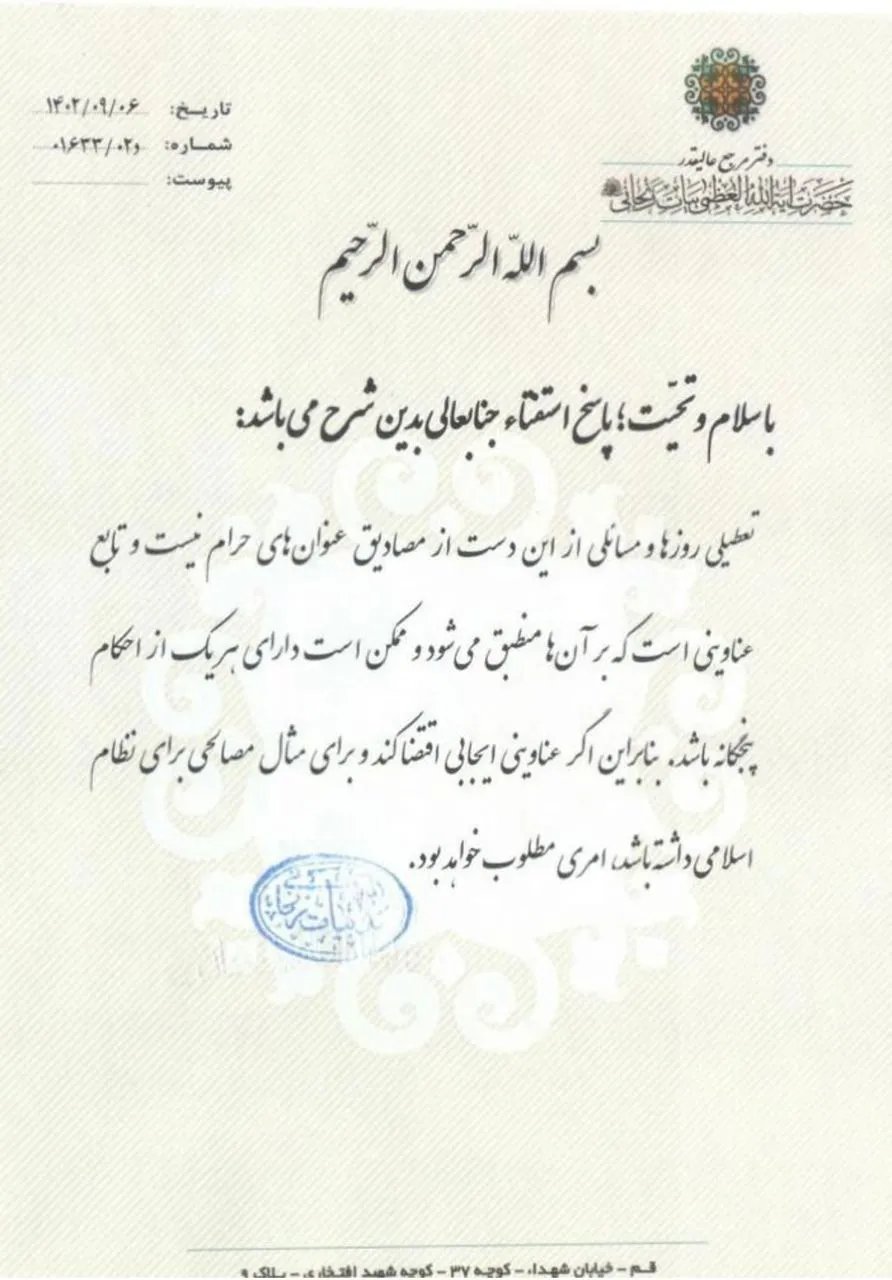 دفتر مرجع عالیقدر
حضرت آیة الله العظمی بیات زنجانی
تاریخ: ۱۴۰۲/۰۹/۰۶
شماره: ۰۱۶۳۳/۰۲و
پیوست:
بسم اللّه الرّحمن الرّحیم
باسلام و تحیّت؛ پاسخ استفتاء جنابعالی بدین شرح می باشد:
تعطیلی روزها و مسائلی از این دست از مصادیق عنوان‌های حرام نیست و تابع
عناوینی است که بر آن‌ها منطبق می‌شود و ممکن است دارای هر یک از احکام
پنجگانه باشد. بنابراین اگر عناوینی ایجابی اقتضا کند و برای مثال مصالحی برای نظام
اسلامی داشته باشد، امری مطلوب خواهد بود.
بیات زنجانی
قم - خیابان شهداء - کوچه ۳۷ - کوچه شهید افتخاری - پلاک ۹